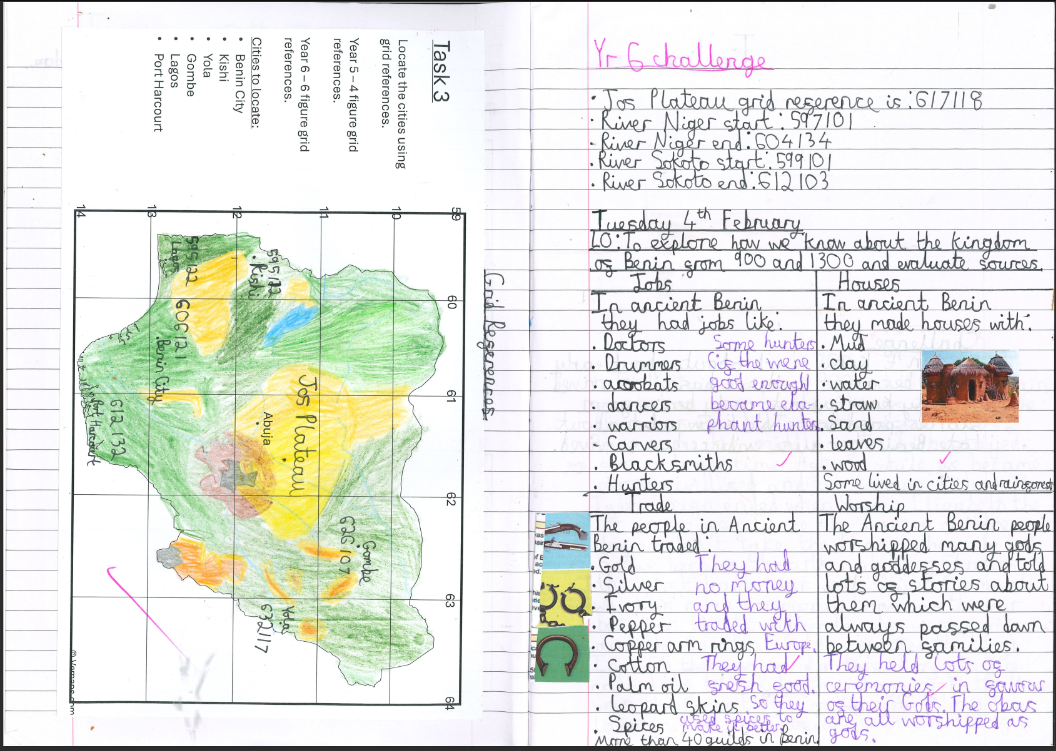 Task 3
Locate the cities using
grid references.
Year 5 – 4 figure grid
references.
Year 6 – 6 figure grid
references.
Cities to locate:
• Benin City
• Kishi
• Yola
• Gombe
• Lagos
• Port Harcourt
Grid References
59
60
61
62
63
64
10
11
12
13
14
595122
Kishi
595122
Lagos
606121
Benin City
612132
Port Harcourt
Jos Plateau
Abuja
Gombe
626107
Yola
632117
Yr 6 challenge
• Jos Plateau grid reference is: 617118
• River Niger start: 597101
- River Niger end: 604134
• River Sokoto start: 599101
• River Sokoto end: 612103
Tuesday 4th February
LO: To explore how we know about the kingdom
of Benin from 900 and 1300 and evaluate sources
Jobs
In ancient Benin
they had jobs like:
• Doctors
• Drummers
• acrobats
• dancers
• warriors
- Carvers
• Blacksmiths
• Hunters
Some hunters
(if the were
good enough)
became ela-
phant hunter.
Houses
In ancient Benin
they made houses with:
• Mud
• clay
• water
• straw
• Sand
• leaves
• wood
Some lived in cities and rainforest
Trade
The people in Ancient
Benin traded:
• Gold
• Silver
• Ivory
• Pepper
• Copper arm rings
• Cotton
• Palm oil
• leopard skins
• Spices
They had
no money
and they
traded with
Europe.
They had
fresh food.
So they
used spices to
make it better
More than 40 guilds in Benin
Worship
The Ancient Benin people
worshipped many gods
and goddesses and told
lots of stories about
them which were
always passed down
between families.
They held lots of
ceremonies in favour
of their Gods. The obas
are all worshipped as
gods.